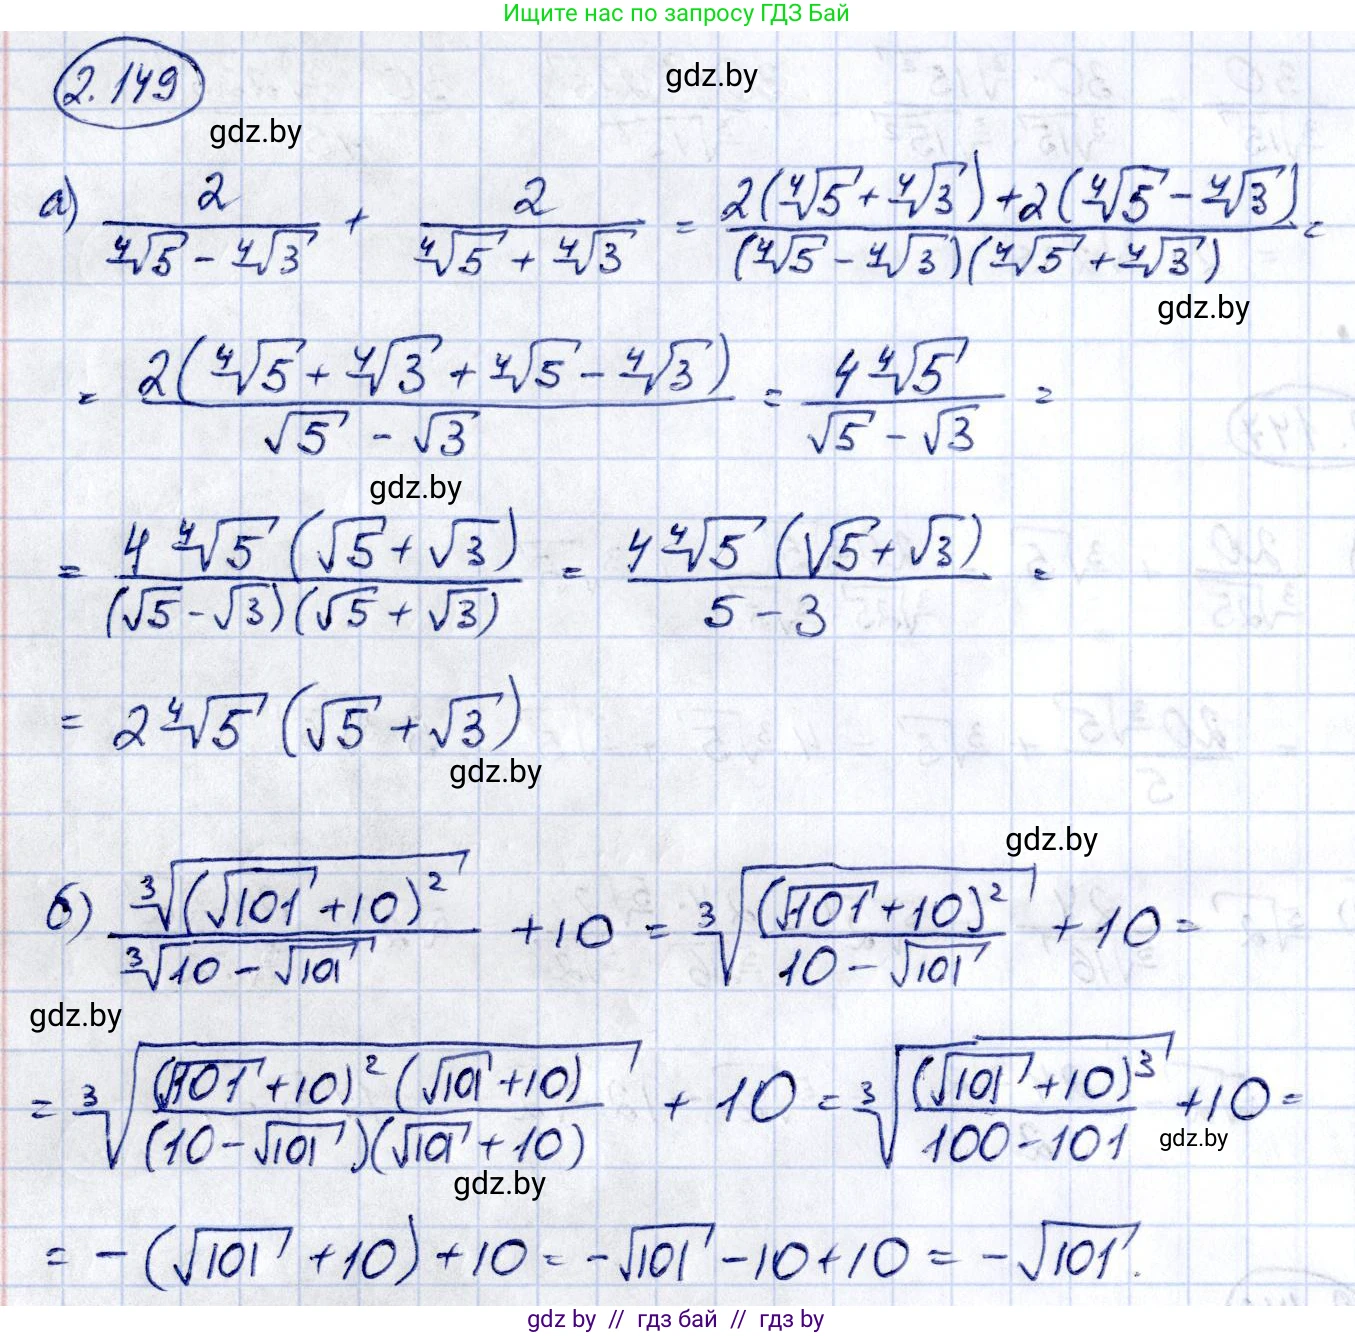 Ищите нас по запросу ГДЗ Бай
2.149
gdz.by
gdz.by
а) 2/(⁴√5 - ⁴√3) + 2/(⁴√5 + ⁴√3) = (2(⁴√5 + ⁴√3) + 2(⁴√5 - ⁴√3))/((⁴√5 - ⁴√3)(⁴√5 + ⁴√3)) =
gdz.by
= 2(⁴√5 + ⁴√3 + ⁴√5 - ⁴√3)/(√5 - √3) = 4⁴√5/(√5 - √3) =
gdz.by
= 4⁴√5(√5 + √3)/((√5 - √3)(√5 + √3)) = 4⁴√5(√5 + √3)/(5 - 3) =
= 2⁴√5(√5 + √3)
gdz.by
gdz.by
б) ³√((√101 + 10)²)/³√(10 - √101) + 10 = ³√((√101 + 10)²/(10 - √101)) + 10 =
gdz.by
= ³√((√101 + 10)²(√101 + 10)/((10 - √101)(√101 + 10))) + 10 = ³√((√101 + 10)³/(100 - 101)) + 10 =
gdz.by
gdz.by
= -(√101 + 10) + 10 = -√101 - 10 + 10 = -√101.
gdz.by // гдз бай // гдз by